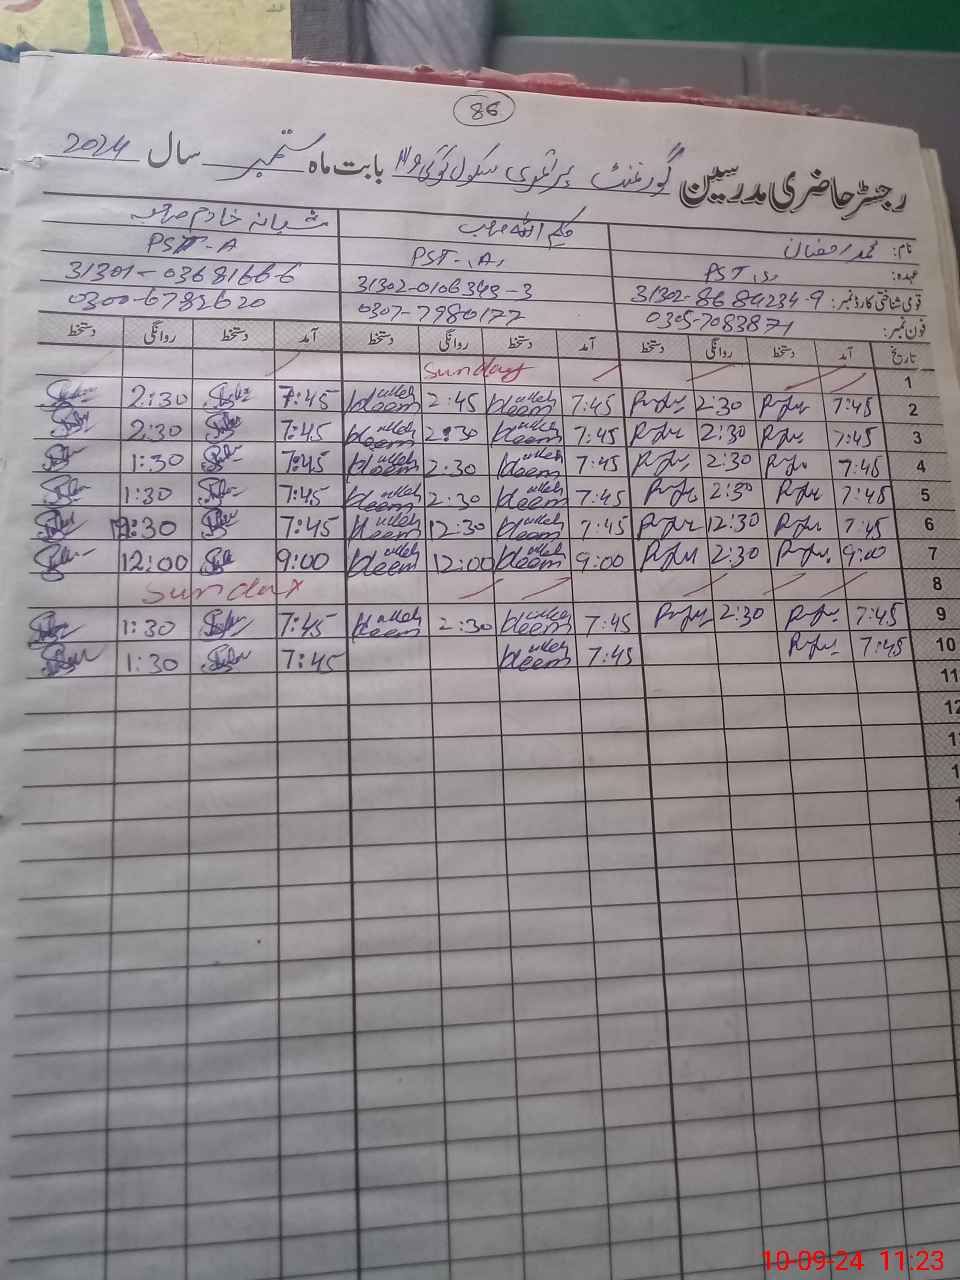 86
رجسٹر حاضری مدرسین گورنمنٹ پرائمری سکول بابت ماہ ستمبر سال 2024
نام: محمد رمضان کلیم اللہ صاحب شبانہ خادم صاحبہ
عہدہ: PST PST-(A) PST-A
قومی شناختی کارڈ نمبر: 31302-8689234-9 31302-0106349-3 31301-0368166-6
فون نمبر: 0305-7083871 0307-7980177 0300-6782620
تاریخ آمد دستخط روانگی دستخط آمد دستخط روانگی دستخط آمد دستخط روانگی دستخط
1 Sunday
2 7:45 2:30 7:45 kleem ullah 2:45 kleem ullah 7:45 2:30
3 7:45 2:30 7:45 kleem ullah 2:30 kleem ullah 7:45 2:30
4 7:45 2:30 7:45 kleem ullah 2:30 kleem ullah 7:45 1:30
5 7:45 2:30 7:45 kleem ullah 2:30 kleem ullah 7:45 1:30
6 7:45 12:30 7:45 kleem ullah 12:30 kleem ullah 7:45 12:30
7 9:00 2:30 9:00 kleem ullah 12:00 kleem ullah 9:00 12:00
8 Sunday
9 7:45 2:30 7:45 kleem ullah 2:30 kleem ullah 7:45 1:30
10 7:45 7:45 kleem ullah 7:45 1:30
11
12
10-09-24 11:23